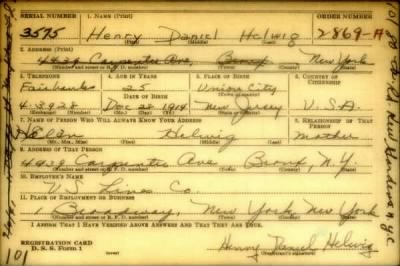 SERIAL NUMBER 1. NAME (Print) ORDER NUMBER
3575 Henry Daniel Helwig 2869-A
(First) (Middle) (Last)
2. ADDRESS (Print)
4939 Carpenter Ave, Bronx New York
(Number and street or R. F. D. number) (Town) (County) (State)
3. TELEPHONE 4. AGE IN YEARS 5. PLACE OF BIRTH 6. COUNTRY OF CITIZENSHIP
Fairbanks 25 Union City
DATE OF BIRTH
4-3928 Dec 28 1914 New Jersey U.S.A.
7. NAME OF PERSON WHO WILL ALWAYS KNOW YOUR ADDRESS 8. RELATIONSHIP OF THAT PERSON
Helen Helwig Mother
9. ADDRESS OF THAT PERSON
4939 Carpenter Ave Bronx, N.Y.
(Number and street or R. F. D. number) (Town) (County) (State)
10. EMPLOYER'S NAME
U.S. Lines Co.
11. PLACE OF EMPLOYMENT OR BUSINESS
1 Broadway, New York New York
(Number and street or R. F. D. number) (Town) (County) (State)
I AFFIRM THAT I HAVE VERIFIED ABOVE ANSWERS AND THAT THEY ARE TRUE.
REGISTRATION CARD
D. S. S. Form 1 Henry Daniel Helwig
101
Kew Gardens N.Y.C.